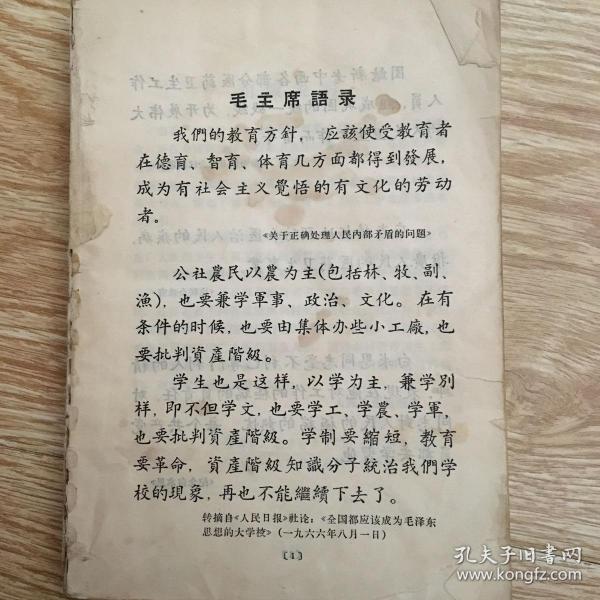 毛主席語录
我們的教育方針，应該使受教育者
在德育、智育、体育几方面都得到發展，
成为有社会主义覺悟的有文化的劳动
者。
《关于正确处理人民内部矛盾的问題》
公社農民以農为主(包括林、牧、副、
漁)，也要兼学軍事、政治、文化。在有
条件的时候，也要由集体办些小工廠，也
要批判資產階級。
学生也是这样，以学为主，兼学别
样，即不但学文，也要学工、学農、学軍，
也要批判資產階級。学制要縮短，教育
要革命，資產階級知識分子統治我們学
校的現象，再也不能繼續下去了。
转摘自《人民日报》社论：《全国都应该成为毛泽东
思想的大学校》(一九六六年八月一日)
〔1〕
孔夫子旧书网
www.kongfz.com